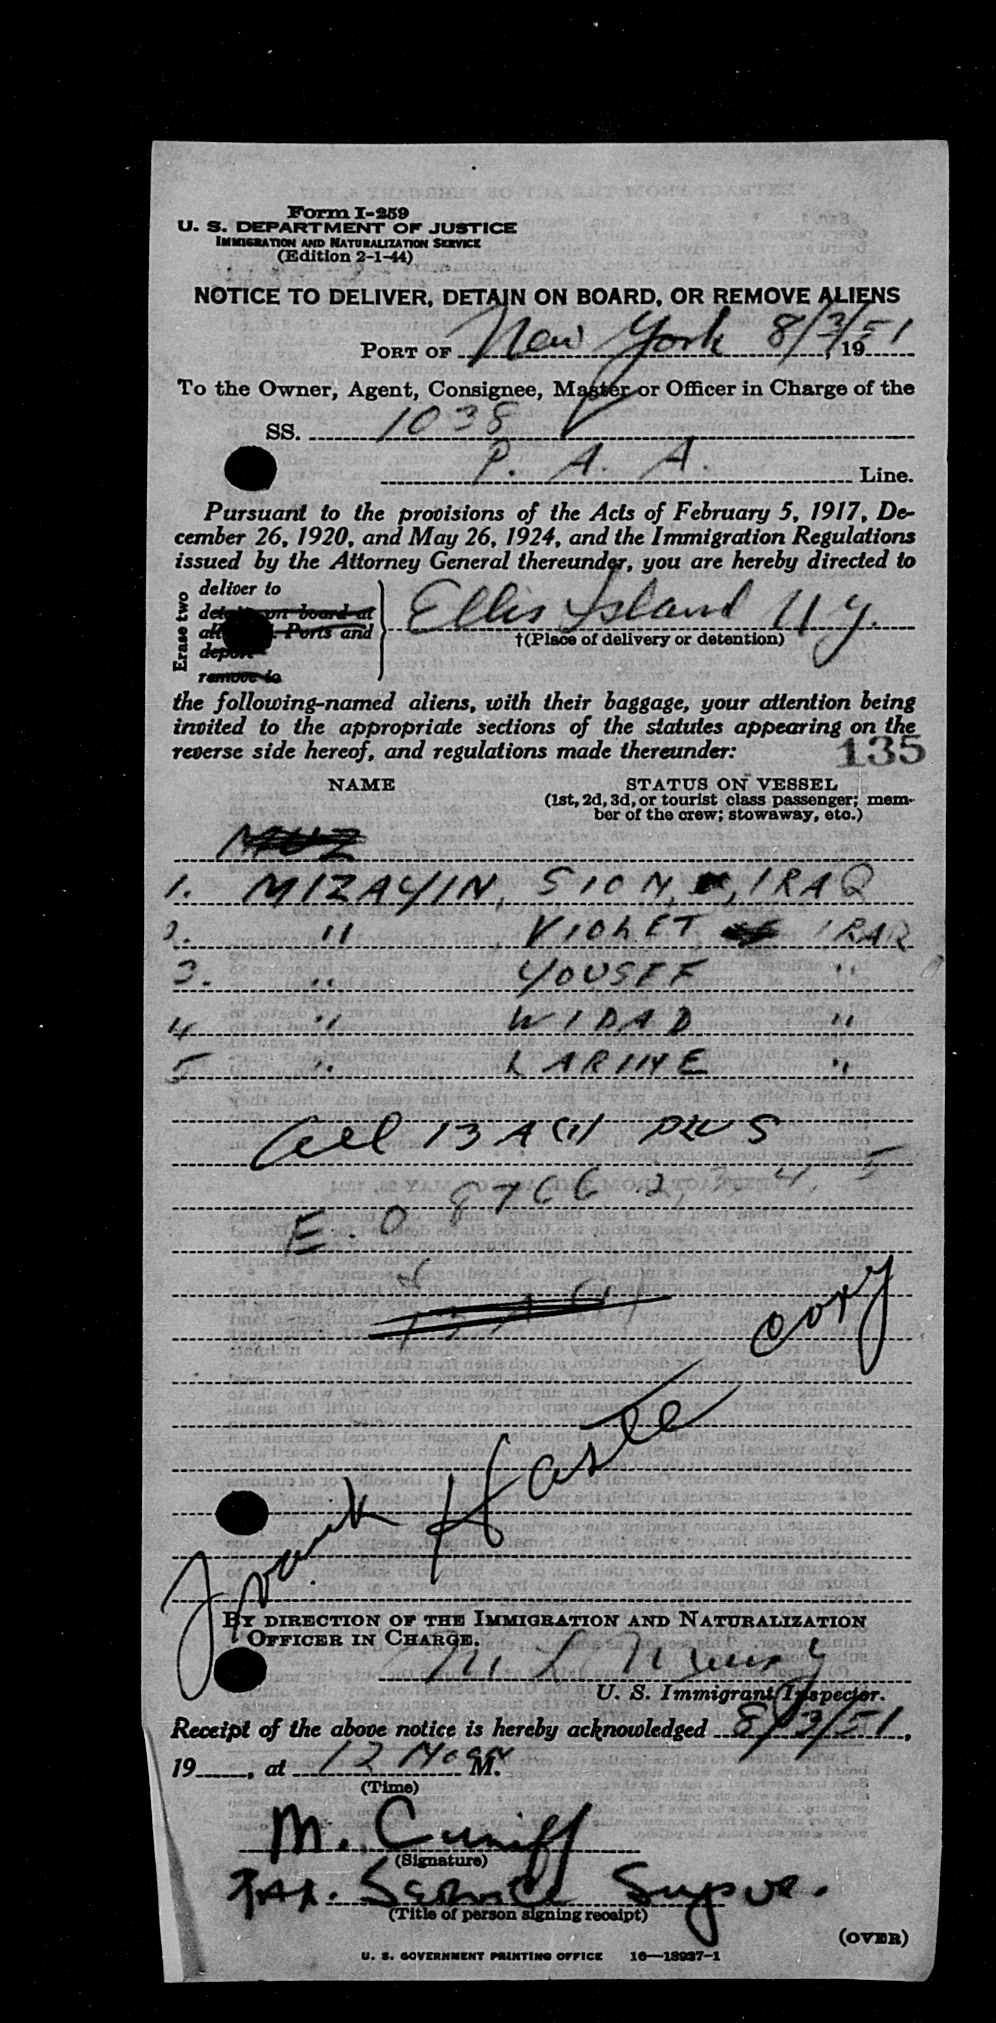 Form I-259
U. S. DEPARTMENT OF JUSTICE
IMMIGRATION AND NATURALIZATION SERVICE
(Edition 2-1-44)
NOTICE TO DELIVER, DETAIN ON BOARD, OR REMOVE ALIENS
PORT OF New York 8/3/51, 19
To the Owner, Agent, Consignee, Master or Officer in Charge of the
SS. 1038
P. A. A. Line.
Pursuant to the provisions of the Acts of February 5, 1917, De-
cember 26, 1920, and May 26, 1924, and the Immigration Regulations
issued by the Attorney General thereunder, you are hereby directed to
Erase two
deliver to
detain on board at
all Ports and
deport
remove to
Ellis Island N y.
†(Place of delivery or detention)
the following-named aliens, with their baggage, your attention being
invited to the appropriate sections of the statutes appearing on the
reverse side hereof, and regulations made thereunder:
135
NAME STATUS ON VESSEL
(1st, 2d, 3d, or tourist class passenger; mem-
ber of the crew; stowaway, etc.)
MUZ
1. MIZAYIN, SION, IRAQ
2. " VIOLET IRAQ
3. " YOUSEF "
4 " WIDAD "
5 " LARINE "
All 13 A (1)
E. O 8766 2, 3, 4, 5
13 A (1)
Frank Hasttee
BY DIRECTION OF THE IMMIGRATION AND NATURALIZATION
OFFICER IN CHARGE.
M L
U. S. Immigrant Inspector.
Receipt of the above notice is hereby acknowledged 8/3/51,
19, at 12 Noon M.
(Time)
M. Cuniff
(Signature)
Service Supvr.
(Title of person signing receipt)
(OVER)
U. S. GOVERNMENT PRINTING OFFICE 16—13937-1